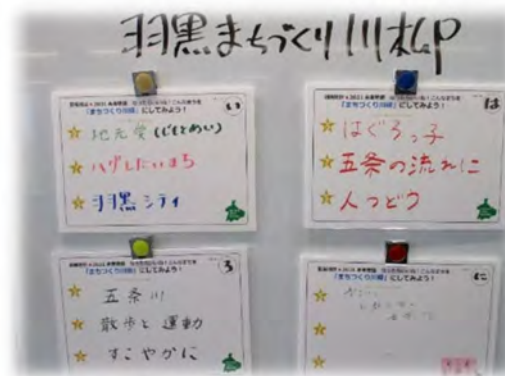 羽黒まちづくり川柳
「まちづくり川柳」にしてみよう！
い
地元愛(じもとめい)
ハグしたいまち
羽黒シティ
「まちづくり川柳」にしてみよう！
は
はぐろっ子
五条の流れに
人つどう
「まちづくり川柳」にしてみよう！
ろ
五条川
散歩と運動
すこやかに
「まちづくり川柳」にしてみよう！
に